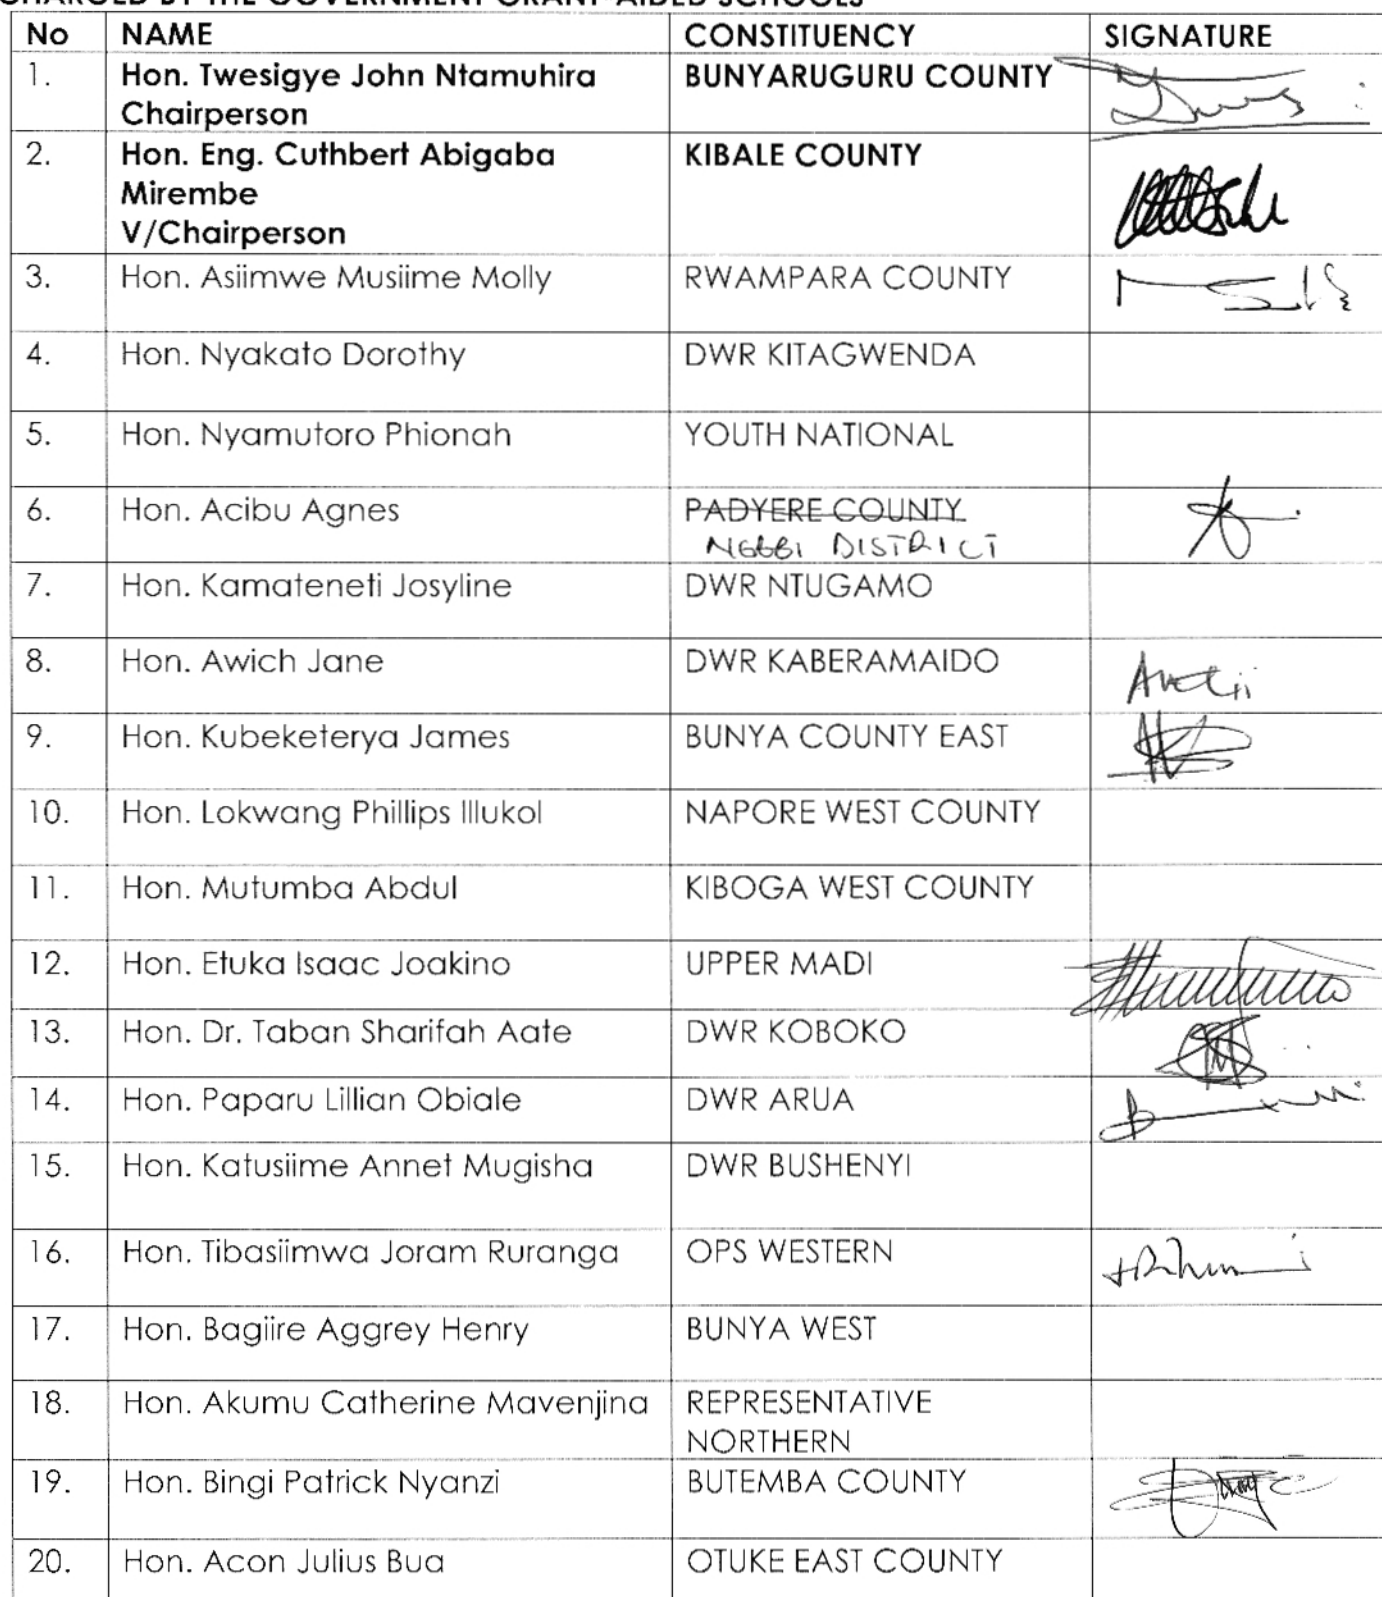 CHARGED BY THE GOVERNMENT GRANT-AIDED SCHOOLS
No NAME CONSTITUENCY SIGNATURE
1. Hon. Twesigye John Ntamuhira BUNYARUGURU COUNTY
Chairperson
2. Hon. Eng. Cuthbert Abigaba KIBALE COUNTY
Mirembe
V/Chairperson
3. Hon. Asiimwe Musiime Molly RWAMPARA COUNTY
4. Hon. Nyakato Dorothy DWR KITAGWENDA
5. Hon. Nyamutoro Phionah YOUTH NATIONAL
6. Hon. Acibu Agnes PADYERE COUNTY
NEBBI DISTRICT
7. Hon. Kamateneti Josyline DWR NTUGAMO
8. Hon. Awich Jane DWR KABERAMAIDO
9. Hon. Kubeketerya James BUNYA COUNTY EAST
10. Hon. Lokwang Phillips Illukol NAPORE WEST COUNTY
11. Hon. Mutumba Abdul KIBOGA WEST COUNTY
12. Hon. Etuka Isaac Joakino UPPER MADI
13. Hon. Dr. Taban Sharifah Aate DWR KOBOKO
14. Hon. Paparu Lillian Obiale DWR ARUA
15. Hon. Katusiime Annet Mugisha DWR BUSHENYI
16. Hon. Tibasiimwa Joram Ruranga OPS WESTERN
17. Hon. Bagiire Aggrey Henry BUNYA WEST
18. Hon. Akumu Catherine Mavenjina REPRESENTATIVE
NORTHERN
19. Hon. Bingi Patrick Nyanzi BUTEMBA COUNTY
20. Hon. Acon Julius Bua OTUKE EAST COUNTY